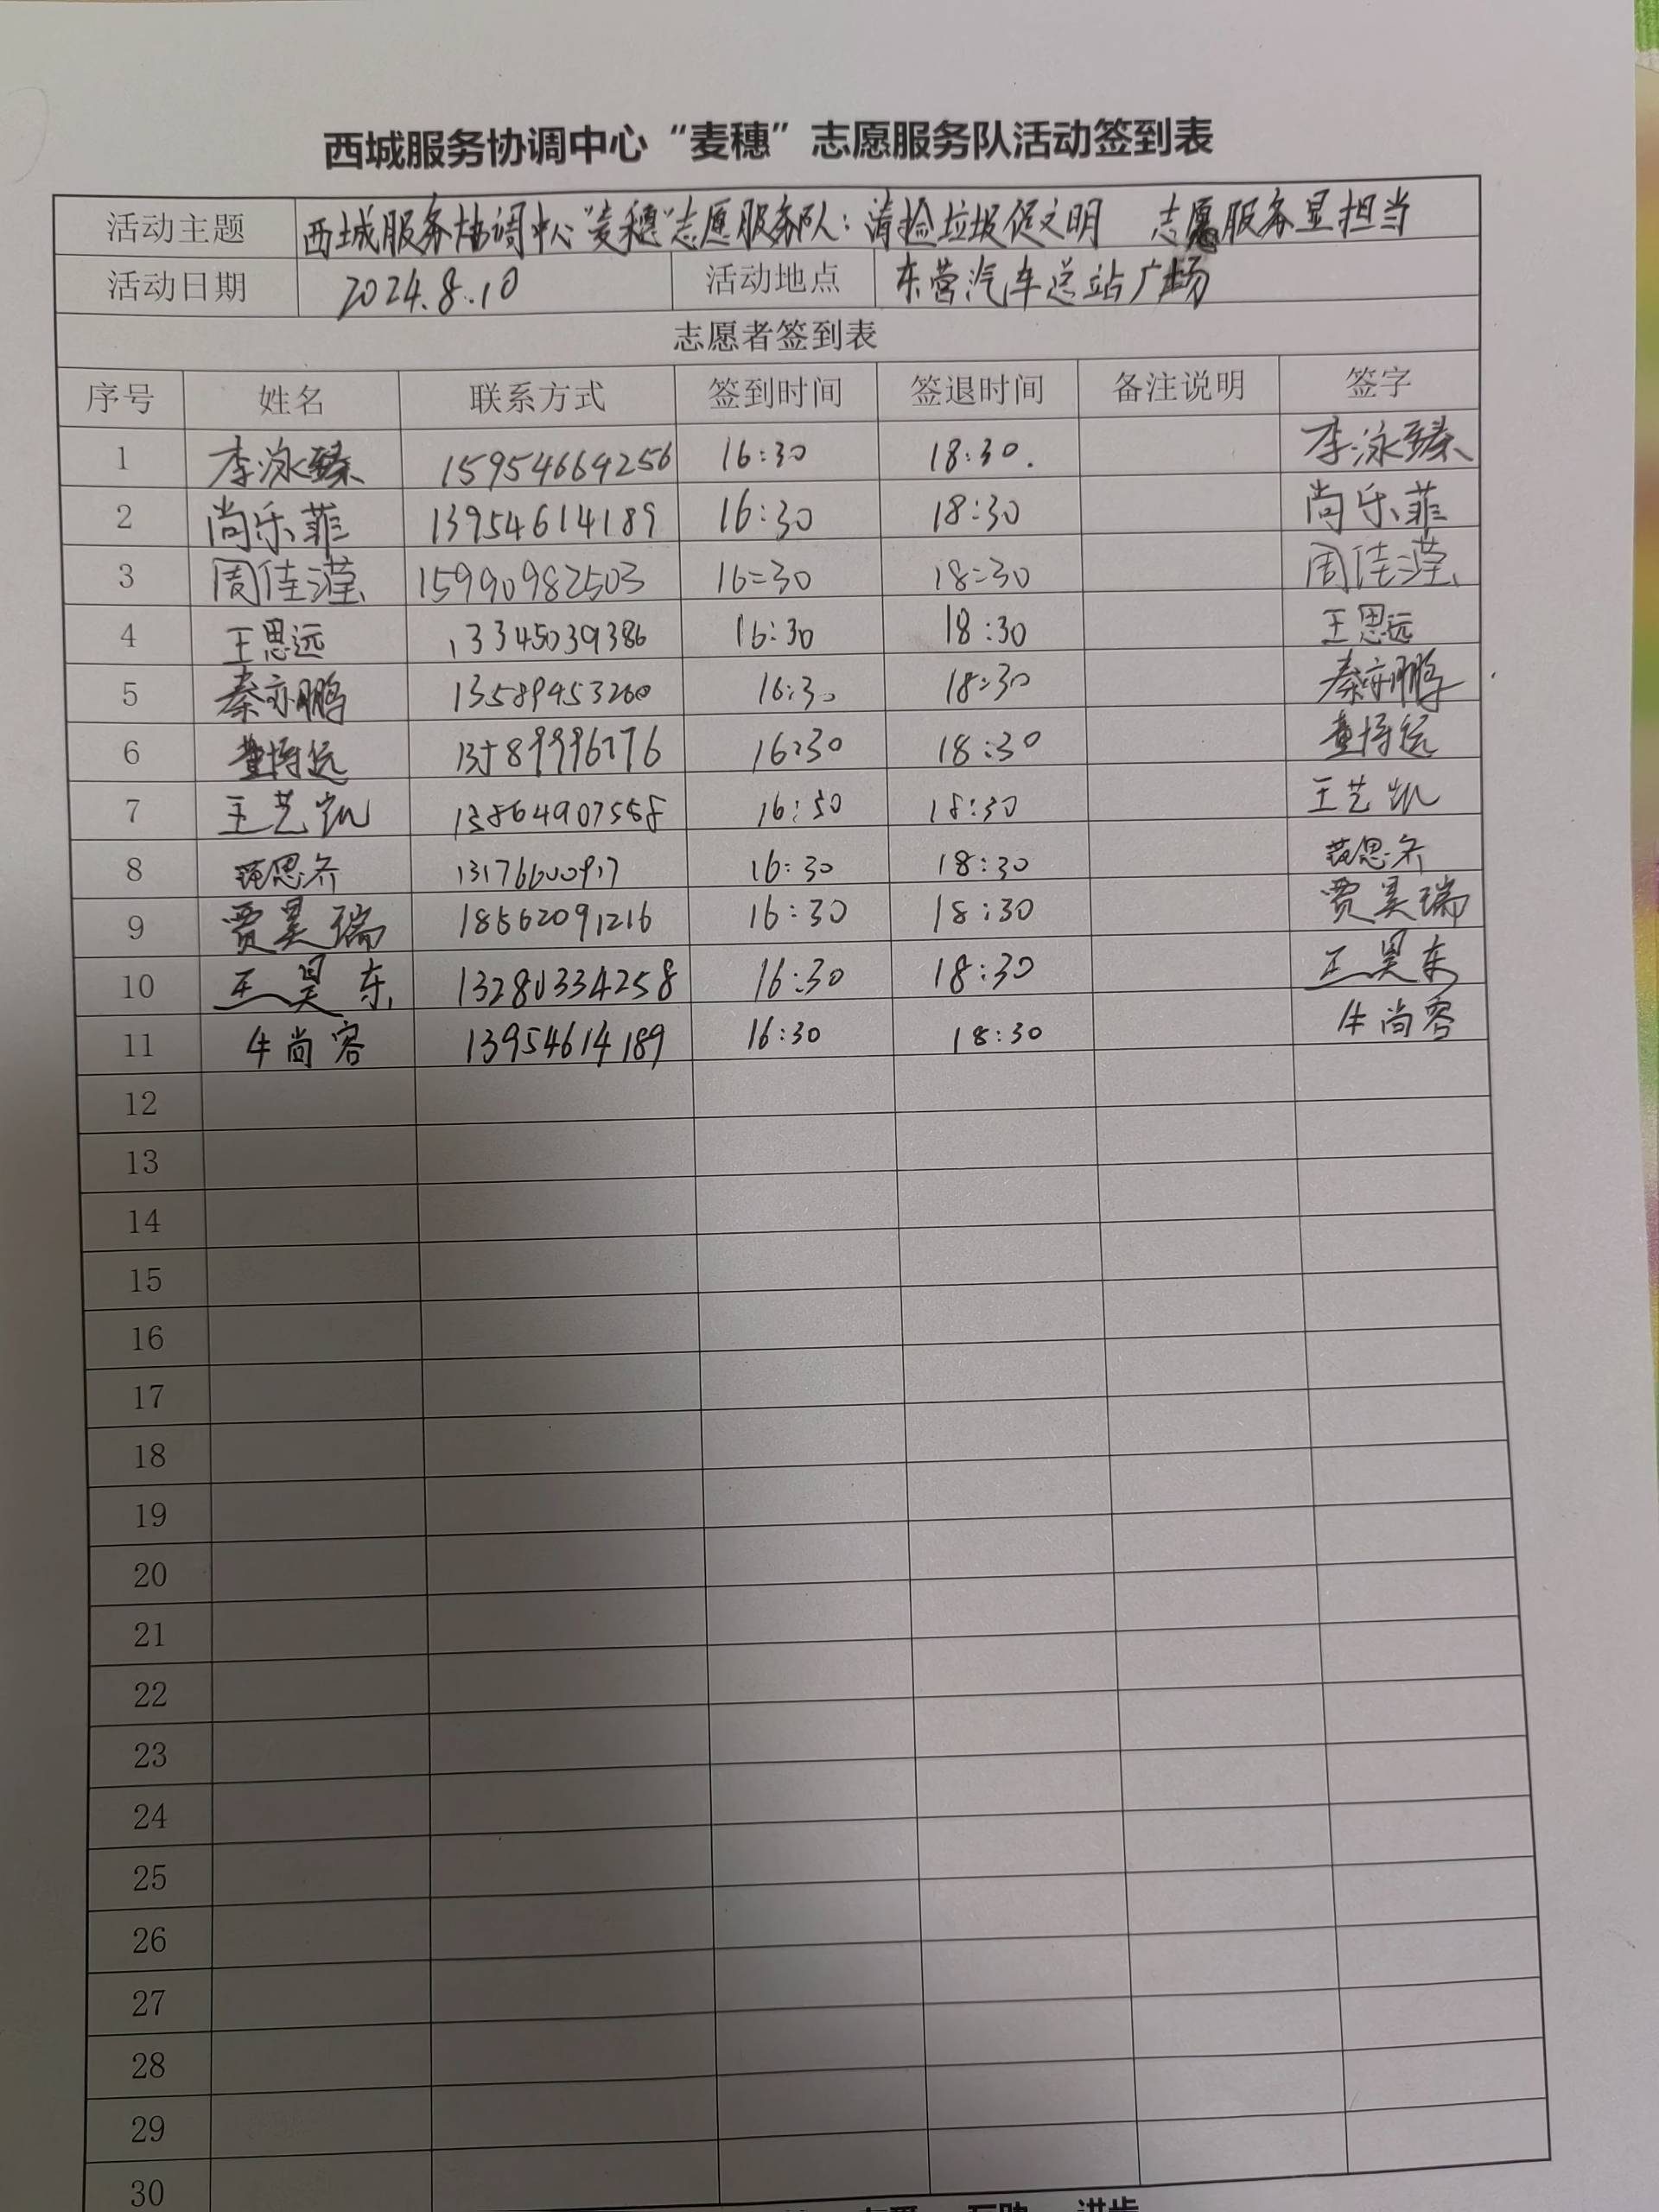 西城服务协调中心“麦穗”志愿服务队活动签到表
活动主题 西城服务协调中心“麦穗”志愿服务队：清捡垃圾促文明 志愿服务显担当
活动日期 2024.8.10 活动地点 东营汽车总站广场
志愿者签到表
序号 姓名 联系方式 签到时间 签退时间 备注说明 签字
1 李泳臻 15954664256 16:30 18:30. 李泳臻
2 尚乐菲 13954614189 16:30 18:30 尚乐菲
3 周佳滢 15990982503 16:30 18:30 周佳滢
4 王思远 13345039386 16:30 18:30 王思远
5 秦亦鹏 13589453260 16:30 18:30 秦亦鹏
6 董博远 16:30 18:30 董博远
7 王艺凯 16:30 18:30 王艺凯
8 范思齐 16:30 18:30 范思齐
9 贾昊瑞 18562091216 16:30 18:30 贾昊瑞
10 王昊东 13280334258 16:30 18:30 王昊东
11 牛尚容 13954614189 16:30 18:30 牛尚容
12
13
14
15
16
17
18
19
20
21
22
23
24
25
26
27
28
29
30